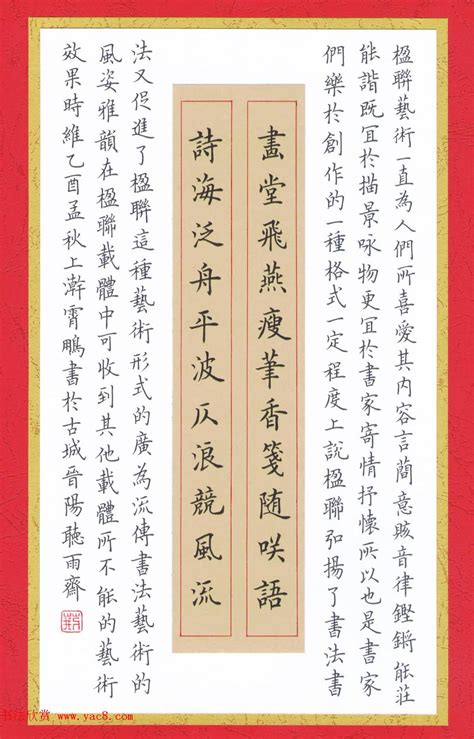 楹聯藝術一直為人們所喜愛其内容言簡意賅音律鏗鏘能莊
能諧既宜於描景咏物更宜於書家寄情抒懷所以也是書家
們樂於創作的一種格式一定程度上說楹聯弘揚了書法書
畫堂飛燕瘦筆香箋随咲語
詩海泛舟平波仄浪競風流
法又促進了楹聯這種藝術形式的廣為流傳書法藝術的
風姿雅韻在楹聯載體中可收到其他載體所不能的藝術
效果時維乙酉孟秋上澣霄鵬書於古城晉陽聽雨齋
书法欣赏 www.yac8.com